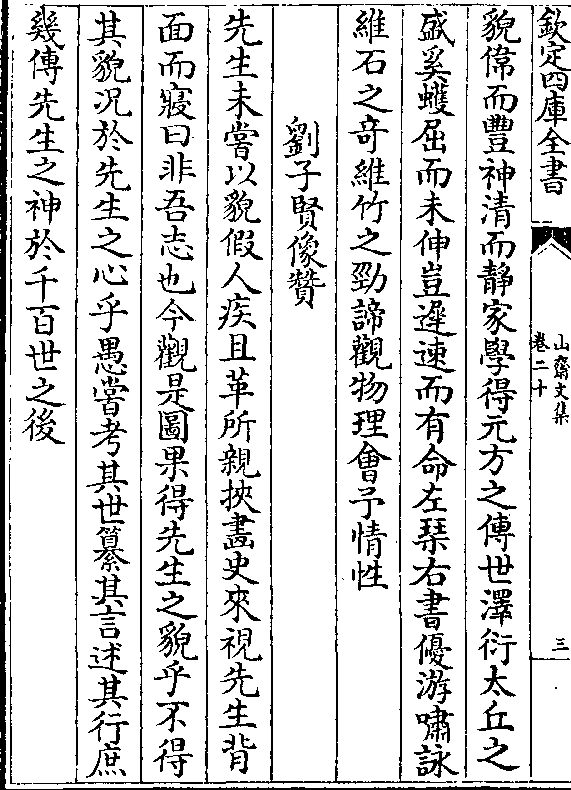 欽定四庫全書
山齋文集
卷二十
三
貌偉而豐神清而靜家學得元方之傳世澤衍太丘之
盛奚蠖屈而未伸豈遲速而有命左琹右書優游嘯詠
維石之竒維竹之勁諦觀物理會予情性
劉子賢像贊
先生未嘗以貌假人疾且革所親挾畵史來視先生背
面而寢曰非吾志也今觀是圖果得先生之貌乎不得
其貌况於先生之心乎愚嘗考其世纂其言述其行庶
幾傳先生之神於千百世之後